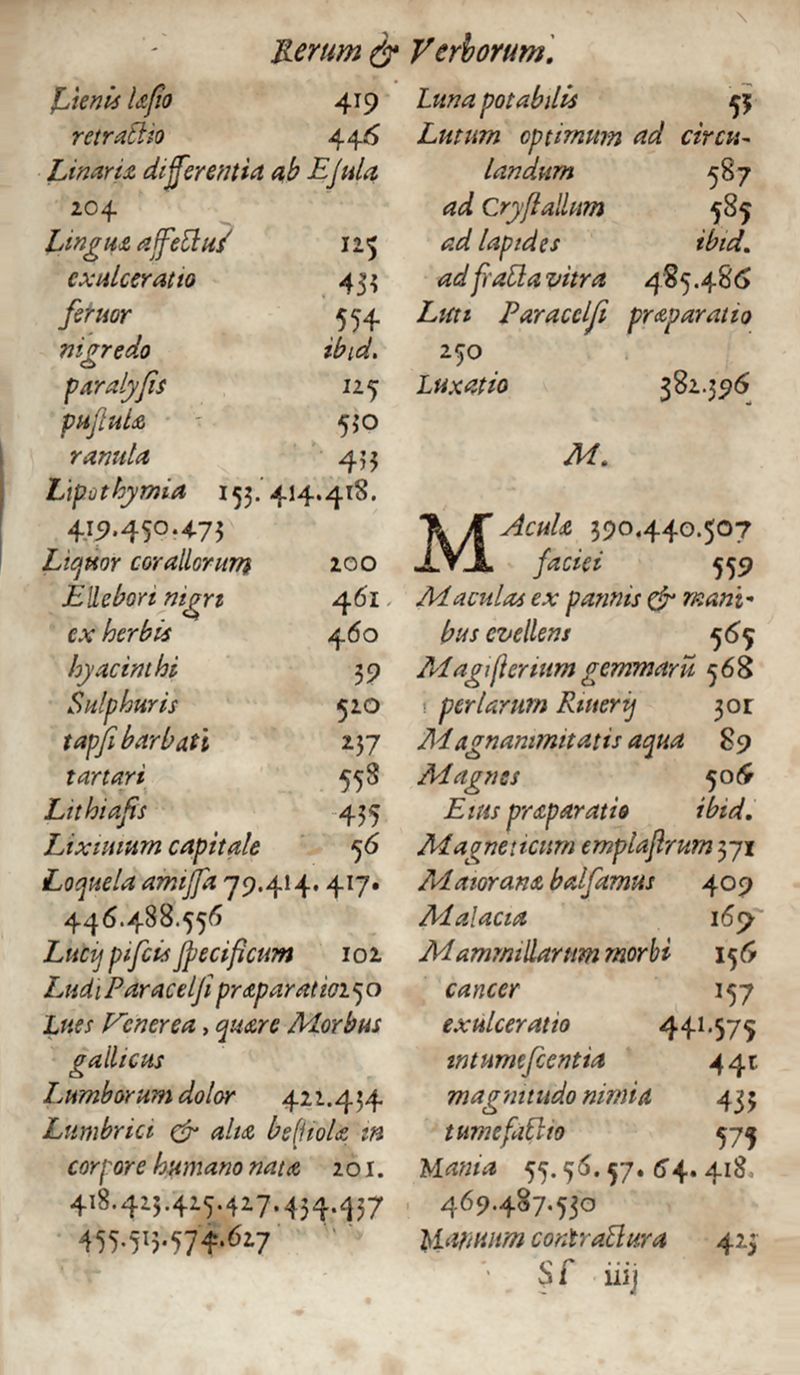 Rerum & Verborum.
Lienis læſio 419
retractio 446
Linariæ differentia ab Eſula
204
Linguæ affectus 125
exulceratio 433
feruor 554
nigredo ibid.
paralyſis 125
puſtulæ 530
ranula 433
Lipothymia 153. 414.418.
419.450.473
Liquor corallorum 200
Ellebori nigri 461
ex herbis 460
hyacinthi 39
Sulphuris 520
tapſi barbati 237
tartari 558
Lithiaſis 435
Lixiuium capitale 56
Loquela amiſſa 79.414. 417.
446.488.556
Lucij piſcis ſpecificum 102
Ludi Paracelſi præparatio 250
Lues Venerea, quære Morbus
gallicus
Lumborum dolor 422.434
Lumbrici & aliæ beſtiolæ in
corpore humano natæ 201.
418.423.425.427.434.437
455.513.574.627
Luna potabilis 53
Lutum optimum ad circu-
landum 587
ad Cryſtallum 585
ad lapides ibid.
ad fracta vitra 485.486
Luti Paracelſi præparatio
250
Luxatio 382.396
M.
MAculæ 390.440.507
faciei 559
Maculas ex pannis & mani-
bus evellens 565
Magiſterium gemmarū 568
perlarum Riuerij 301
Magnanimitatis aqua 89
Magnes 506
Eius præparatio ibid.
Magneticum emplaſtrum 371
Maioranæ balſamus 409
Malacia 169
Mammillarum morbi 156
cancer 157
exulceratio 441.575
intumeſcentia 441
magnitudo nimia 433
tumefactio 575
Mania 55.56.57.64.418.
469.487.530
Manuum contractura 423
Sſ iiij